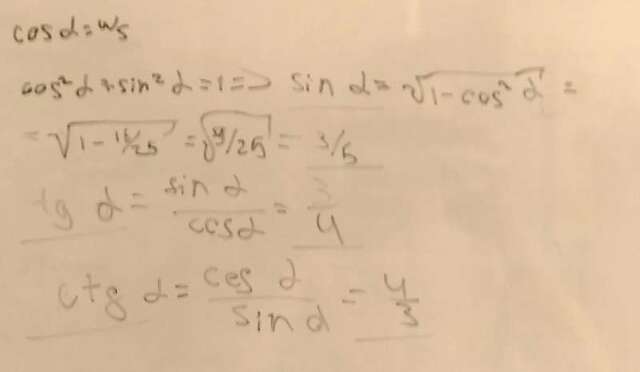 cos α = 4/5
cos² α + sin² α = 1 => sin α = √1 - cos² α =
= √1 - 16/25 = √9/25 = 3/5
tg α = sin α / cos α = 3/4
ctg α = cos α / sin α = 4/3